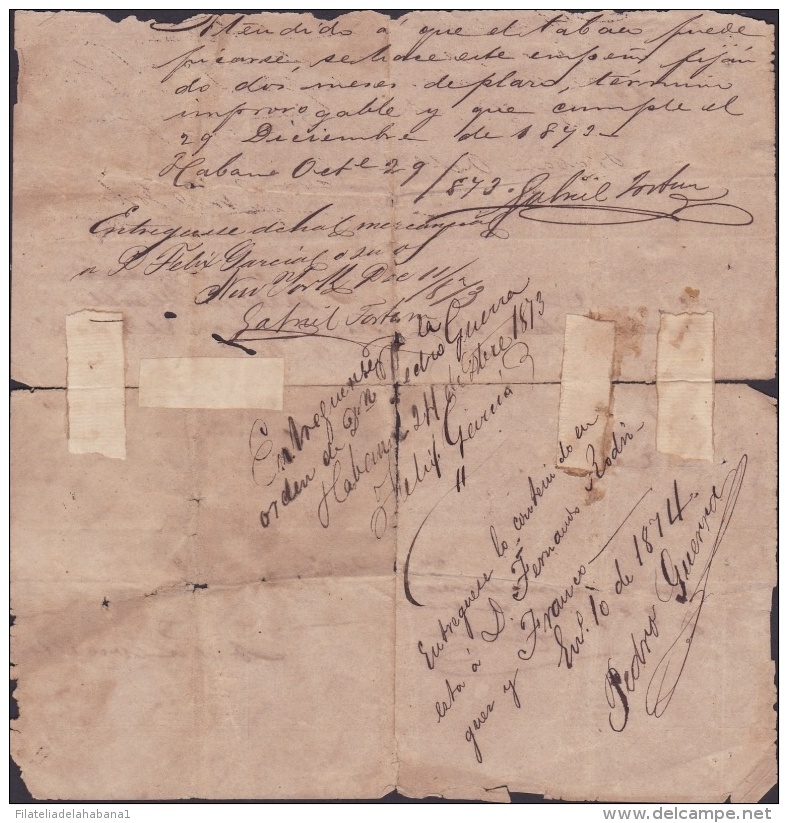 Atendido á que el tabaco puede
picarse, se hace este empeño fijan
do dos meses de plazo, término
improrogable y que cumple el
29 Diciembre de 1873
Habana Octe 29/873. Gabriel Fortun
Entreguese dicha mercancia
a D. Felix Garcia o su o/
New York Dec 11/873
Gabriel Fortun
Entreguense a la
orden de Dn Pedro Guerra
Habana 24 de Dbre 1873
Felix Garcia
Entreguese lo contenido en
esta á D. Fernando Rodri-
guez y Franco
En.o 10 de 1874.
Pedro Guerra.
Filateliadelahabana1
delcampe.net